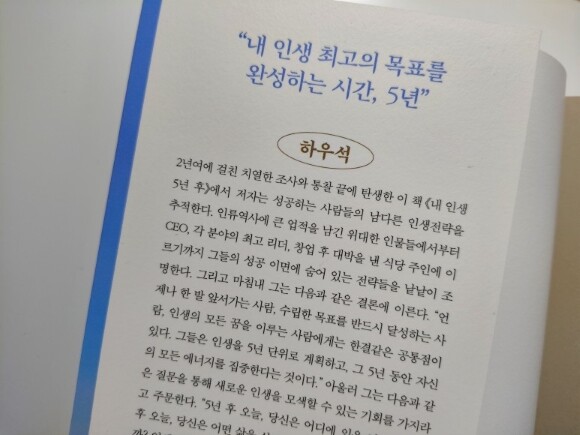 “내 인생 최고의 목표를
완성하는 시간, 5년”
하우석
2년여에 걸친 치열한 조사와 통찰 끝에 탄생한 이 책 《내 인생
5년 후》에서 저자는 성공하는 사람들의 남다른 인생전략을
추적한다. 인류역사에 큰 업적을 남긴 위대한 인물들에서부터
CEO, 각 분야의 최고 리더, 창업 후 대박을 낸 식당 주인에 이
르기까지 그들의 성공 이면에 숨어 있는 전략들을 낱낱이 조
명한다. 그리고 마침내 그는 다음과 같은 결론에 이른다. “언
제나 한 발 앞서가는 사람, 수립한 목표를 반드시 달성하는 사
람, 인생의 모든 꿈을 이루는 사람에게는 한결같은 공통점이
있다. 그들은 인생을 5년 단위로 계획하고, 그 5년 동안 자신
의 모든 에너지를 집중한다는 것이다.” 아울러 그는 다음과 같
은 질문을 통해 새로운 인생을 모색할 수 있는 기회를 가지라
고 주문한다. “5년 후 오늘, 당신은 어디에
후 오늘, 당신은 어떤 삶을